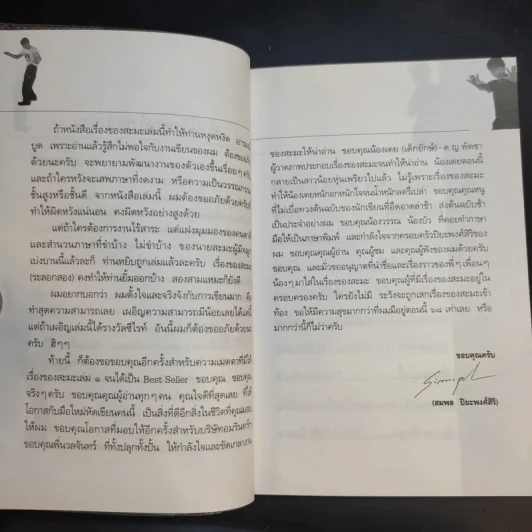 ถ้าหนังสือเรื่องของสะมะเล่มนี้ทำให้ท่านหงุดหงิด
บูด เพราะอ่านแล้วรู้สึกไม่พอใจกับงานเขียนของผม ต้องขอ
ด้วยนะครับ จะพยายามพัฒนางานของตัวเองขึ้นเรื่อยๆ
และถ้าใครหวังจะเสพภาษาที่งดงาม หรือความเป็นวรรณกรรม
ชั้นสูงหรือชั้นดี จากหนังสือเล่มนี้ ผมต้องขออภัยด้วยครับ
ทำให้ผิดหวังแน่นอน คงผิดหวังอย่างสูงด้วย
แต่ถ้าใครต้องการงานไร้สาระ แต่แฝงมุมมองของคน
และสำนวนภาษาที่ขำบ้าง ไม่ขำบ้าง ของนายสะมะผู้มี
เบ่งบานนี้แล้วละก็ ท่านหยิบถูกเล่มแล้วละครับ เรื่องของสะมะ
(ระลอกสอง) คงทำให้ท่านยิ้มออกบ้าง สองสามแหมะก็ยังดี
ผมอยากบอกว่า ผมตั้งใจและจริงจังกับการเขียนมาก
ทำสุดความสามารถเลย เผอิญความสามารถมีน้อยเลยได้แค่นี้
แต่ถ้าเผอิญเล่มนี้ได้รางวัลซีไรท์ อันนี้ผมก็ต้องขออภัยด้วยนะ
ครับ ฮิๆๆ
ท้ายนี้ ก็ต้องขอขอบคุณอีกครั้งสำหรับความเมตตาที่มีให้
เรื่องของสะมะเล่ม ๑ จนได้เป็น Best Seller ขอบคุณ ขอบคุณ
จริงๆครับ ขอบคุณคุณผู้อ่านทุกๆคน คุณใจดีที่สุดเลย ที่ให้
โอกาสกับมือใหม่หัดเขียนคนนี้ เป็นสิ่งที่ดีอีกสิ่งในชีวิตที่คุณมอบ
ให้ผม ขอบคุณโอกาสที่มอบให้อีกครั้งสำหรับบริษัทอมรินทร์ฯ
ขอบคุณพี่นวลจันทร์ ที่ทั้งปลุกทั้งปั้น ให้กำลังใจและขัดเกลางาน
ของสะมะให้น่าอ่าน ขอบคุณน้องเตย (เด็กยักษ์) - ด ญ พัดชา
ผู้วาดภาพประกอบเรื่องของสะมะจนทำให้น่าอ่าน น้องเตยตอนนี้
กลายเป็นสาวน้อยหุ่นเพรียวไปแล้ว ไม่รู้เพราะเรื่องของสะมะ
ทำให้น้องเตยหนักอกหนักใจจนน้ำหนักลดรึเปล่า ขอบคุณคุณหนู
ที่ไม่เบื่อทวงต้นฉบับของนักเขียนที่อืดอาดล่าช้า ส่งต้นฉบับช้า
เป็นประจำอย่างผม ขอบคุณน้องวรรณ น้องบัว ที่คอยทำภาษา
มือให้เป็นภาษาพิมพ์ และกำลังใจจากครอบครัวปิยะพงศ์สิริของ
ผม ขอบคุณคุณผู้อ่าน คุณผู้ชม และคุณผู้ฟังของผมด้วยครับ
ขอบคุณ และมัวขออนุญาตที่นำชื่อและเรื่องราวของพี่ๆเพื่อนๆ
น้องๆมาใส่ในเรื่องของสะมะ ขอบคุณผู้ที่มีเรื่องของสะมะอยู่ใน
ครอบครองครับ ใครยังไม่มี ระวังจะถูกเสกเรื่องของสะมะเข้า
ท้อง ขอให้มีความสุขมากกว่าที่ผมมีอยู่ตอนนี้ ๖๘ เท่าเลย หรือ
มากกว่านี้ก็ไม่ว่าครับ
ขอบคุณครับ
(สมพล ปิยะพงศ์สิริ)